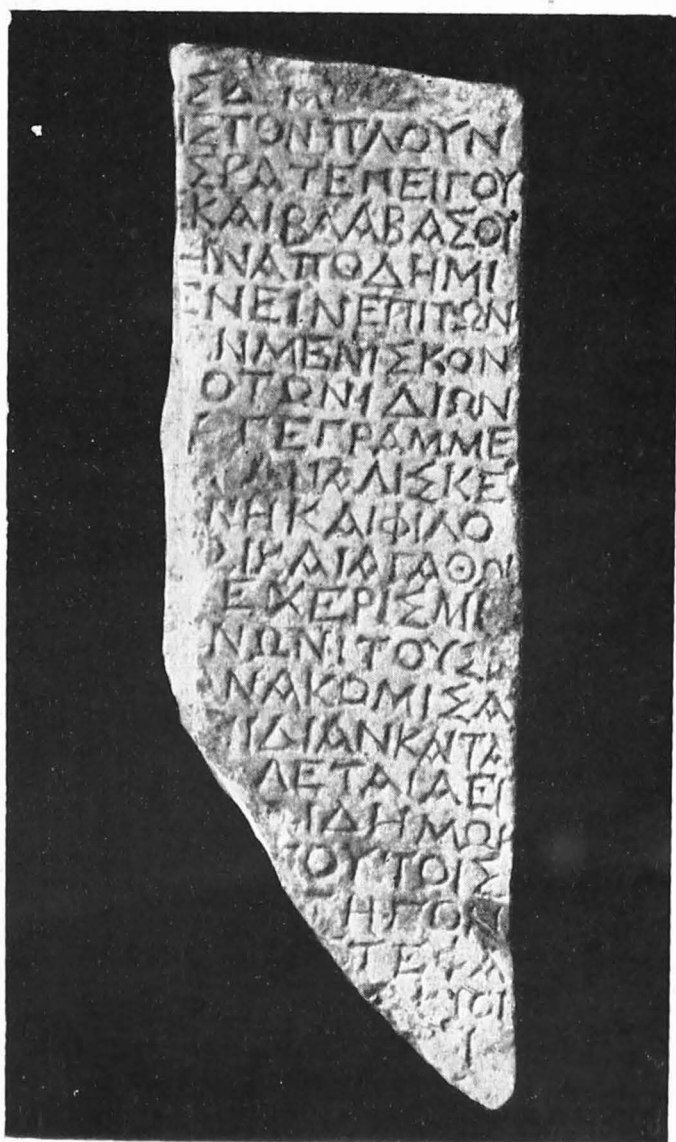 ΣΔ
ΙΣΤΟΝΠΛΟΥΝ
ΣΡΑΤΕΠΕΙΓΟΥ
ΚΑΙΒΛΑΒΑΣΟΥ
ΗΝΑΠΟΔΗΜΙ
ΕΝΕΙΝΕΠΙΤΩΝ
ΝΜΕΝΙΣΚΟΝ
ΟΤΩΝΙΔΙΩΝ
ΓΕΓΡΑΜΜΕ
ΑΛΙΣΚΕ
ΝΗΚΑΙΦΙΛΟ
ΚΑΙΑΓΑΘΩΙ
ΕΧΕΡΙΣΜΕ
ΝΩΝΙΤΟΥΣ
ΑΝΑΚΟΜΙΣΑ
ΙΔΙΑΝΚΑΙΤΑ
ΛΕΤΑΙΑΕΙ
ΙΔΗΜΩΙ
ΟΥΤΟΙΣ
ΗΓΟΝ
ΤΕΣΑ